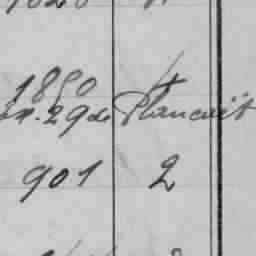 1850 4
29 de Plancoët
901 2